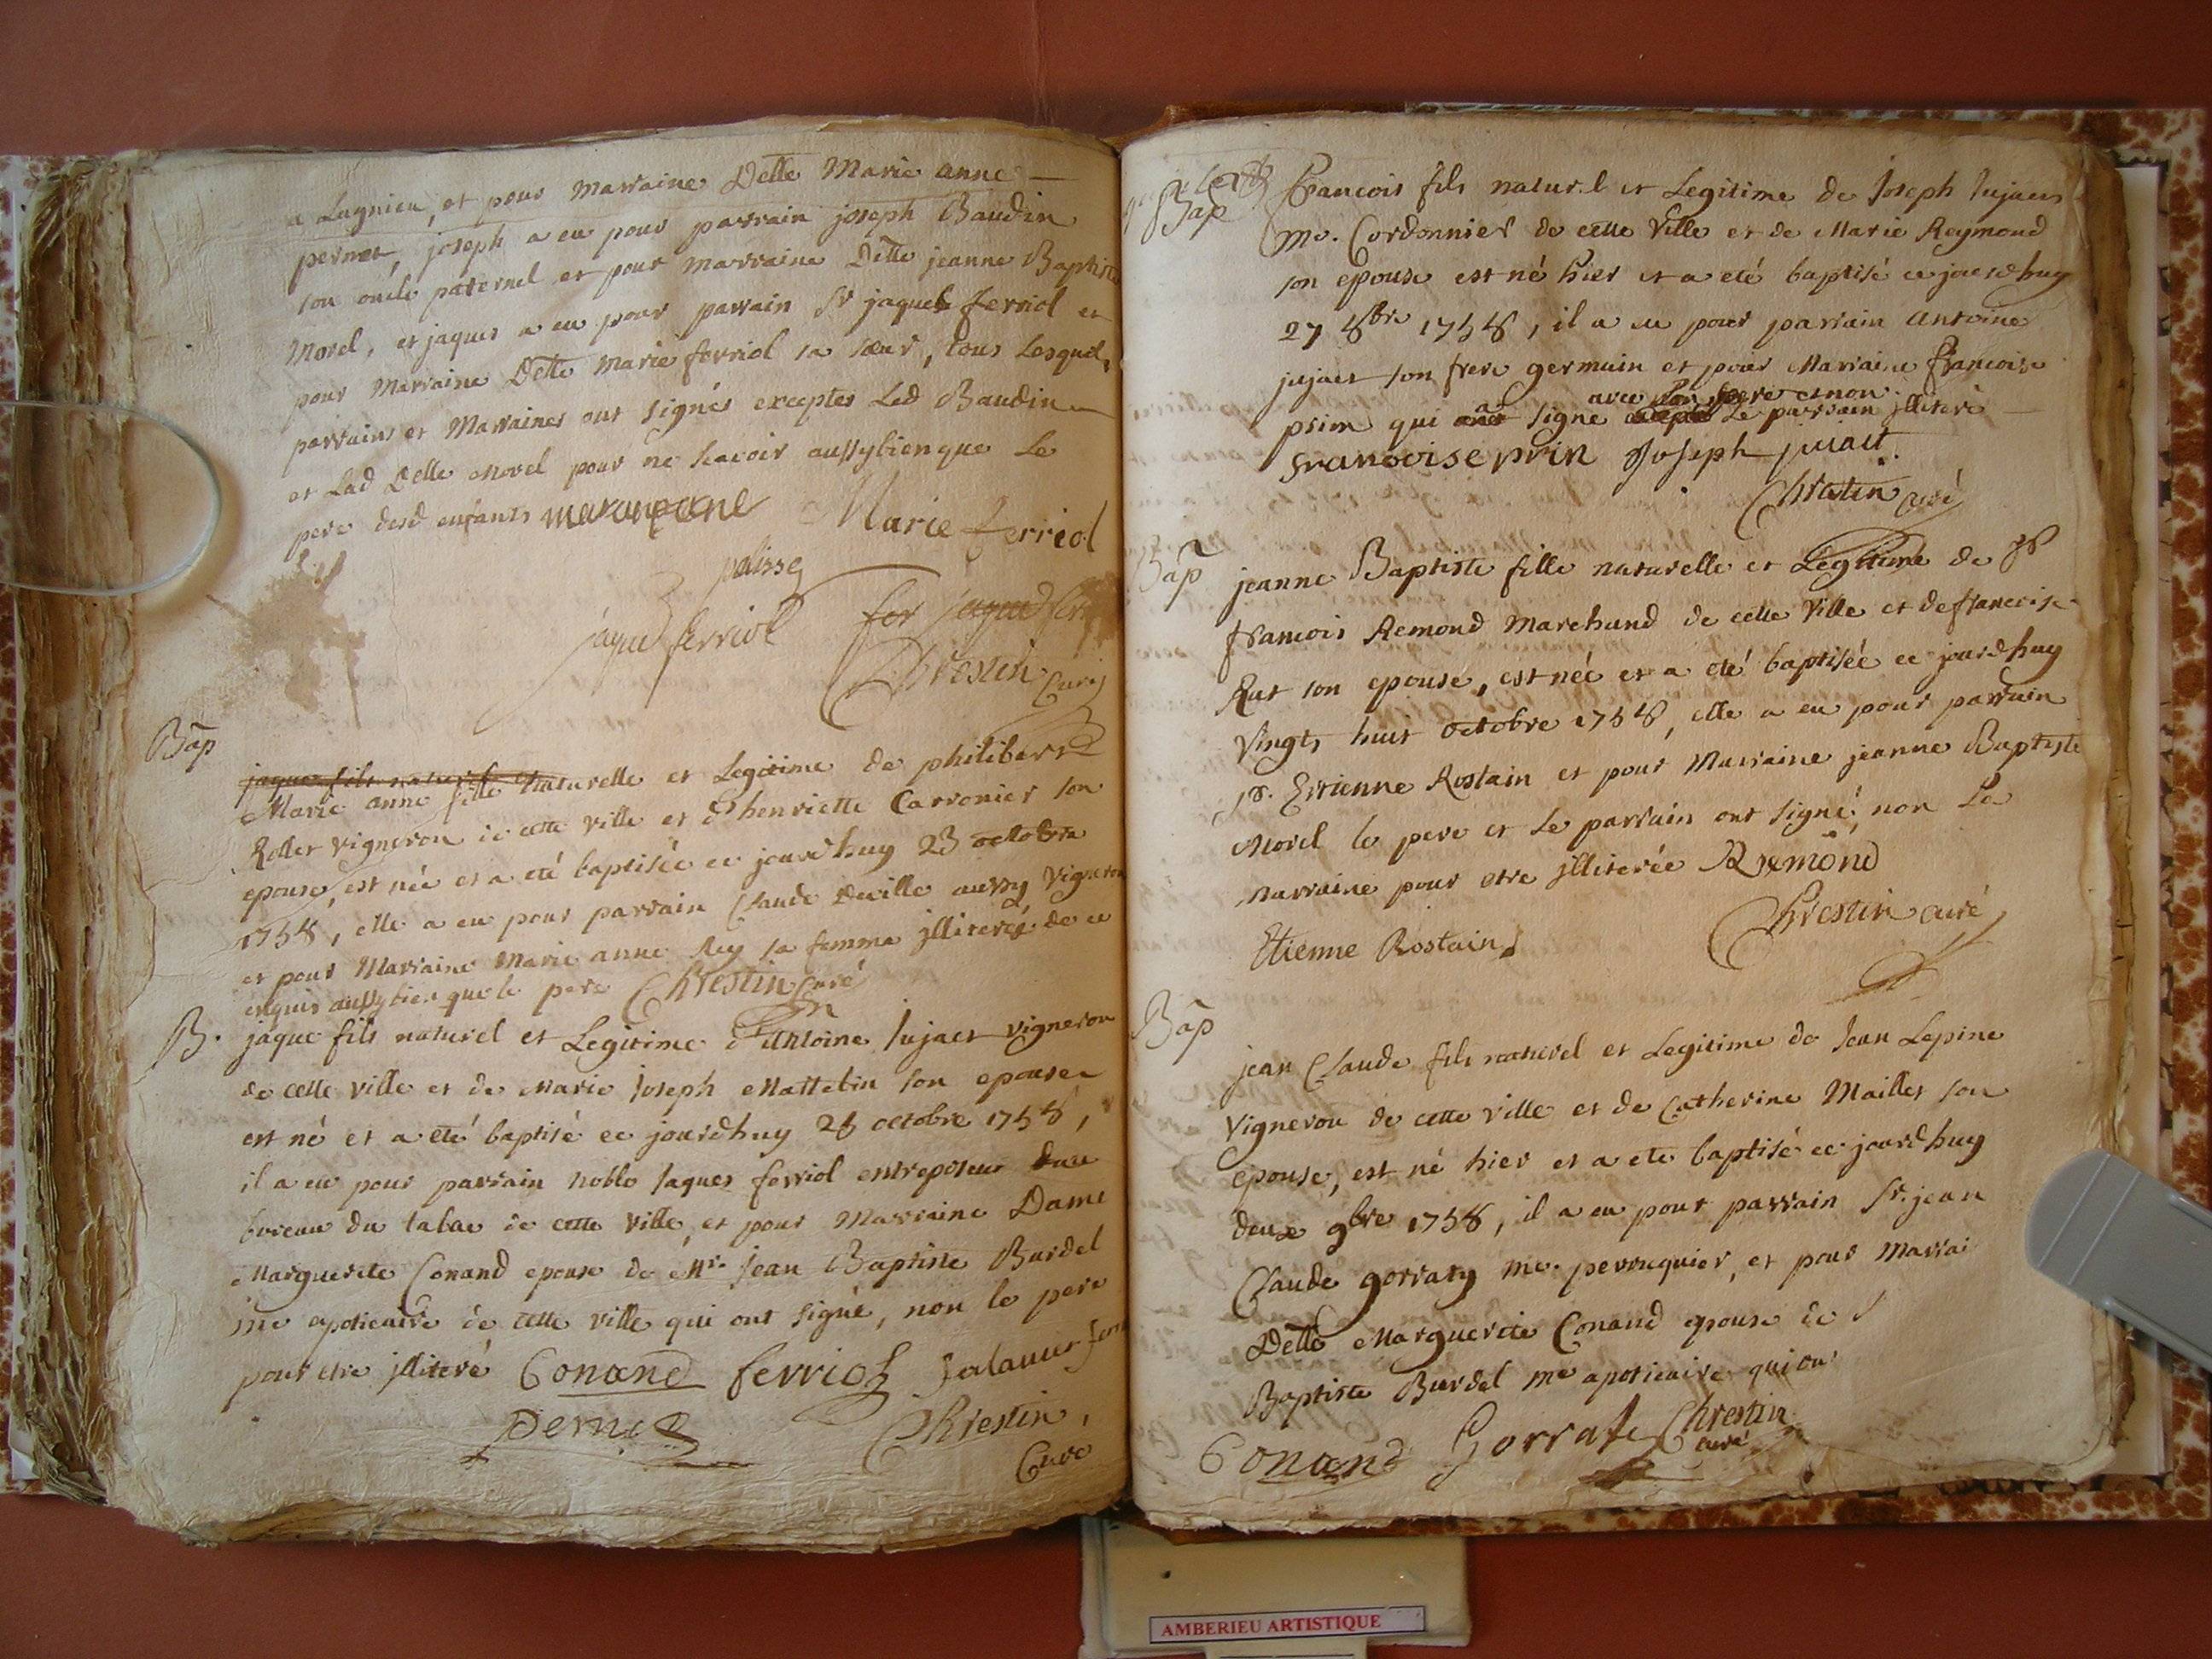 a Lagnieu, et pour marraine Delle Marie anne
pernet, joseph a eu pour parrain joseph Baudin
son oncle paternel et pour marraine Delle jeanne Baptiste
Morel, et jaques a eu pour parrain Sr jaques ferriol et
pour Marraine Delle Marie ferriol sa sœur, tous Lesquels
parrains et Marraines ont signés exceptes Led Baudin
et Lad Delle Morel pour ne scavoir aussybien que Le
pere desd enfants
Marie ferriol
palisse
jaque ferriol
Chrestin Curé
Bap
jaque fils naturel et
Marie anne fille Naturelle et Legitime de philibert
Rollet vigneron de cette ville et d'henriette Carronier son
epouse, est née et a eté baptisée ce jourdhuy 23 octobre
1758, elle a eu pour parrain Claude Deville aussy vigneron
et pour Marraine Marie anne Rey sa femme jlliterés de ce
enquis aussybien que le pere Chrestin Curé
B. jaque fils naturel et Legitime d'Antoine Jujaet vigneron
de cette ville et de Marie Joseph Mattelin son epouse
est né et a eté baptisé ce jourdhuy 28 octobre 1758,
il a eu pour parrain noble Jaques ferriol entreposeur du
bureau du tabac de cette ville, et pour Marraine Dame
Marguerite Conand epouse de Mr. Jean Baptiste Burdel
me apoticaire de cette ville qui ont signé, non le pere
pour etre jlliteré Conand ferriol
pernet
Chrestin,
Curé
Bap
francois fils naturel et Legitime de Joseph Jujaet
Me. Cordonnier de cette Ville et de Marie Reymond
son epouse est né hier et a eté baptisé ce jourdhuy
27 8bre 1758, il a eu pour parrain antoine
jujaet son frere germain et pour Marraine francoise
avec son pere et non
prin qui a signe Le parrain jlliteré
francoise prin Joseph juiait.
Chrestin curé
Bap
jeanne Baptiste fille naturelle et Legitime de Sr
francois Remond Marchand de cette Ville et de francoise
Rut son epouse, est née et a eté baptisée ce jourdhuy
Vingts huit octobre 1758, elle a eu pour parrain
Sr. Ettienne Rostain et pour Marraine jeanne Baptiste
Morel le pere et Le parrain ont signé, non La
Marraine pour etre jlliterée Remond
Chrestin curé
Etienne Rostain
Bap
jean Claude fils naturel et Legitime de Jean Lepine
Vigneron de cette ville et de Catherine Maillet son
epouse, est né hier et a eté baptisé ce jourdhuy
deux 9bre 1758, il a eu pour parrain Sr. jean
Claude gorraty me. perruquier, et pour Marrai
Delle Marguerite Conand epouse de
Baptiste Burdel me apoticaire qui on
Conand Gorrate Chrestin
curé
AMBERIEU ARTISTIQUE